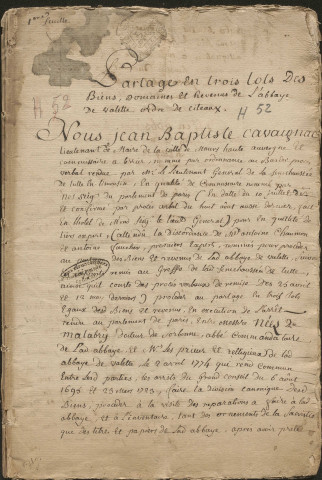 1ere feuille
Partage en trois lots Des
Biens, Domaines et Revenus de L'abbaye
de valette ordre de citeaux.
H 52 H 52
Nous jean Baptiste Cavaignac
Lieutenant de Maire de la ville de haute auvergne et
commissaire a nommé par ordonnance au Bas du procès
verbal rendue par Mr le Lieutenant General de la Senechaussée
de tulle en Limosin, en qualité de Commissaire nommé par
du parlement de paris, En datte du 10 juillet
et confirmé par procès verbal du huit août aussi dernier, fait
a l'hotel de mondit le Lieutt General pour en qualité de
tiers expert, attendu la Discordance de antoine Chaumon
et antoine premiers experts, nommés pour proceder
au des Biens et revenus de lad. abbaye de valette, suivant
remis au Greffe de lad. senechaussée de tulle,
ainsi qu'il conste des procès verbaux de remise, Des 26 avril
et 12 may derniers, proceder au partage en trois lots
Egaux des Biens et revenus, en execution de l'arrêt
rendu au parlement de paris, Entre Messire
malabry docteur de sorbonne, abbé Commandataire
de Lad. abbaye et Mrs Les prieur et religieux de lad.
abbaye de valette le 2 avril 1774 qui rend commun
Entre lesd. parties, les arrets du Grand conseil du 6 août
1695 et 23 mars 1725, faire la division canonique desd.
Biens, proceder à la visite des reparations a faire à lad.
abbaye, et à l'inventaire, tant des ornements de la sacristie
que des titres et papiers de Lad. abbaye, après avoir prêté